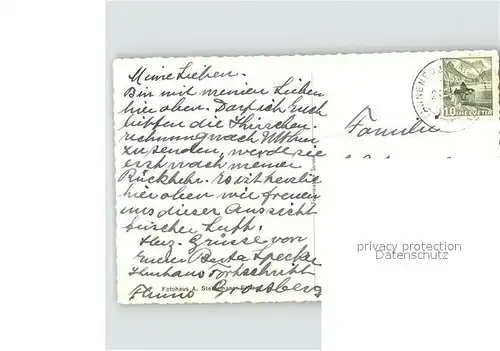 Meine Lieben.
Bin mit meinen Lieben
hier oben. Darf ich Euch
bitten die Kirschen-
rechnung nach
zu senden, werde sie
erst nach meiner
Rückkehr. Es ist herrlich
hier oben wir freuen
uns dieser Aussicht
frischer Luft.
Herz. Grüsse von
Eurer Berta Specker
Fortschritt
Fotohaus A.
Familie
10 HELVETIA
privacy protection
Datenschutz